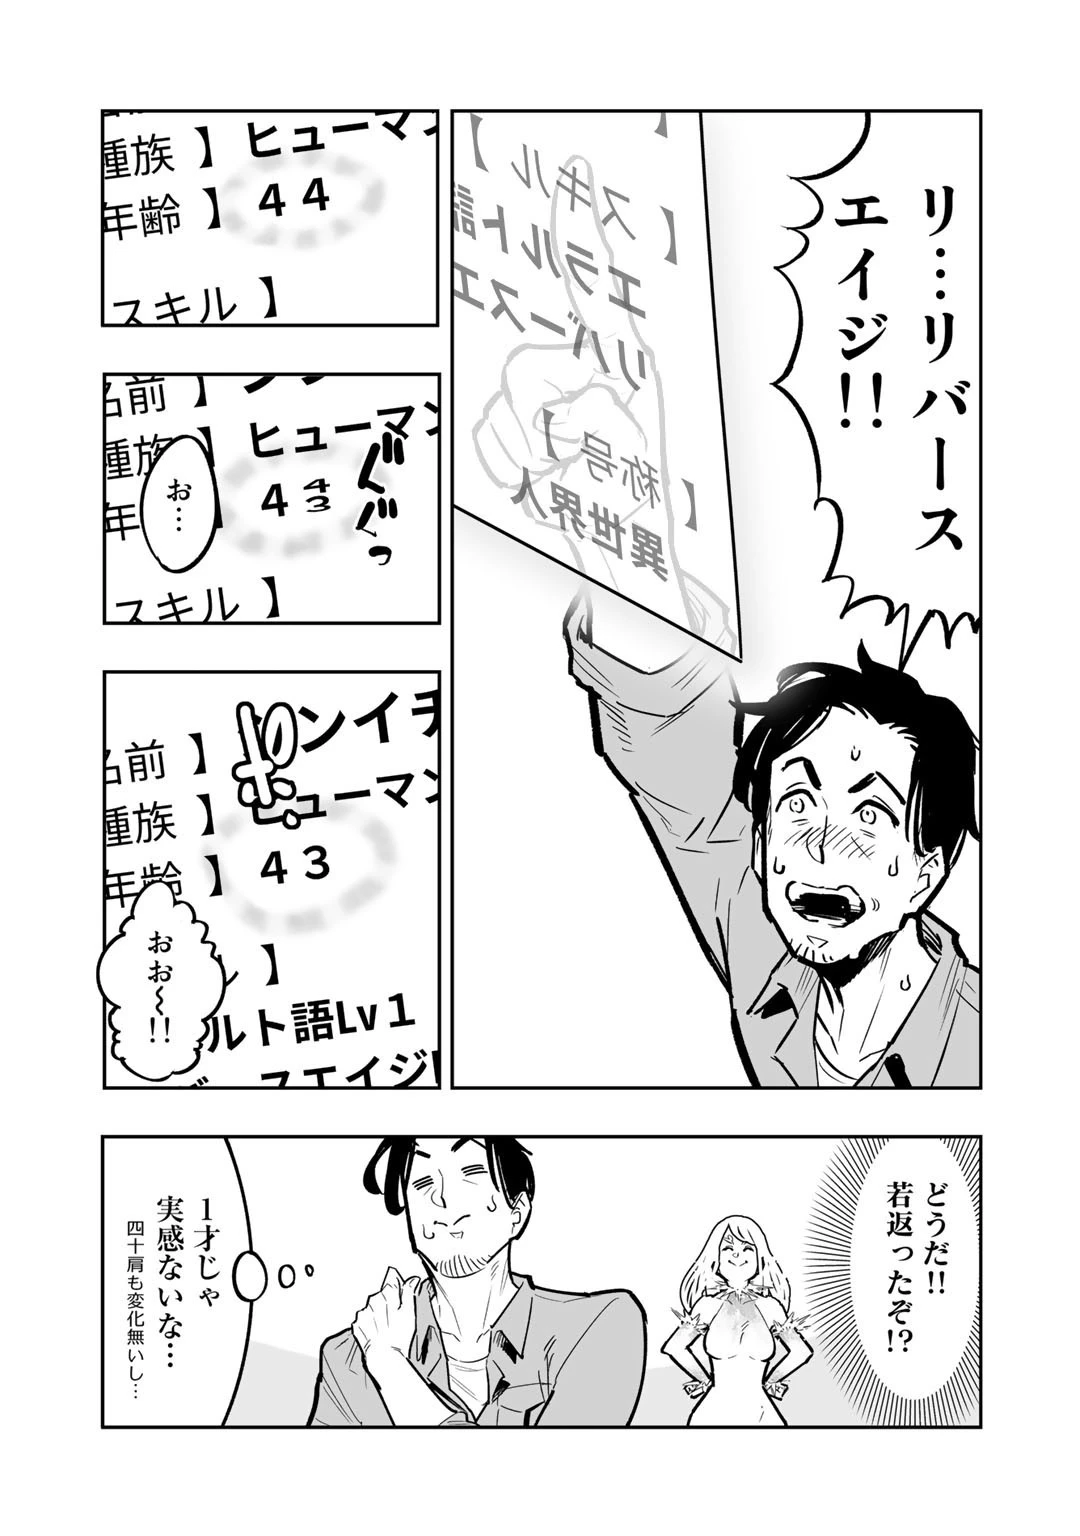 リ…リバース
エイジ!!
【スキル】
エラルト語
リバースエ
【称号】
異世界人
種族】ヒューマン
年齢】44
スキル】
名前】
種族】ヒューマン
年
4 4
3
ぐんぐっ
お…
スキル】
ンイチ
名前】
ぽん
種族】ヒューマン
年齢】43
ル】
おお〜!!
ルト語Lv1
スエイジL
どうだ!!
若返ったぞ!?
1才じゃ
実感ないな…
四十肩も変化無いし…